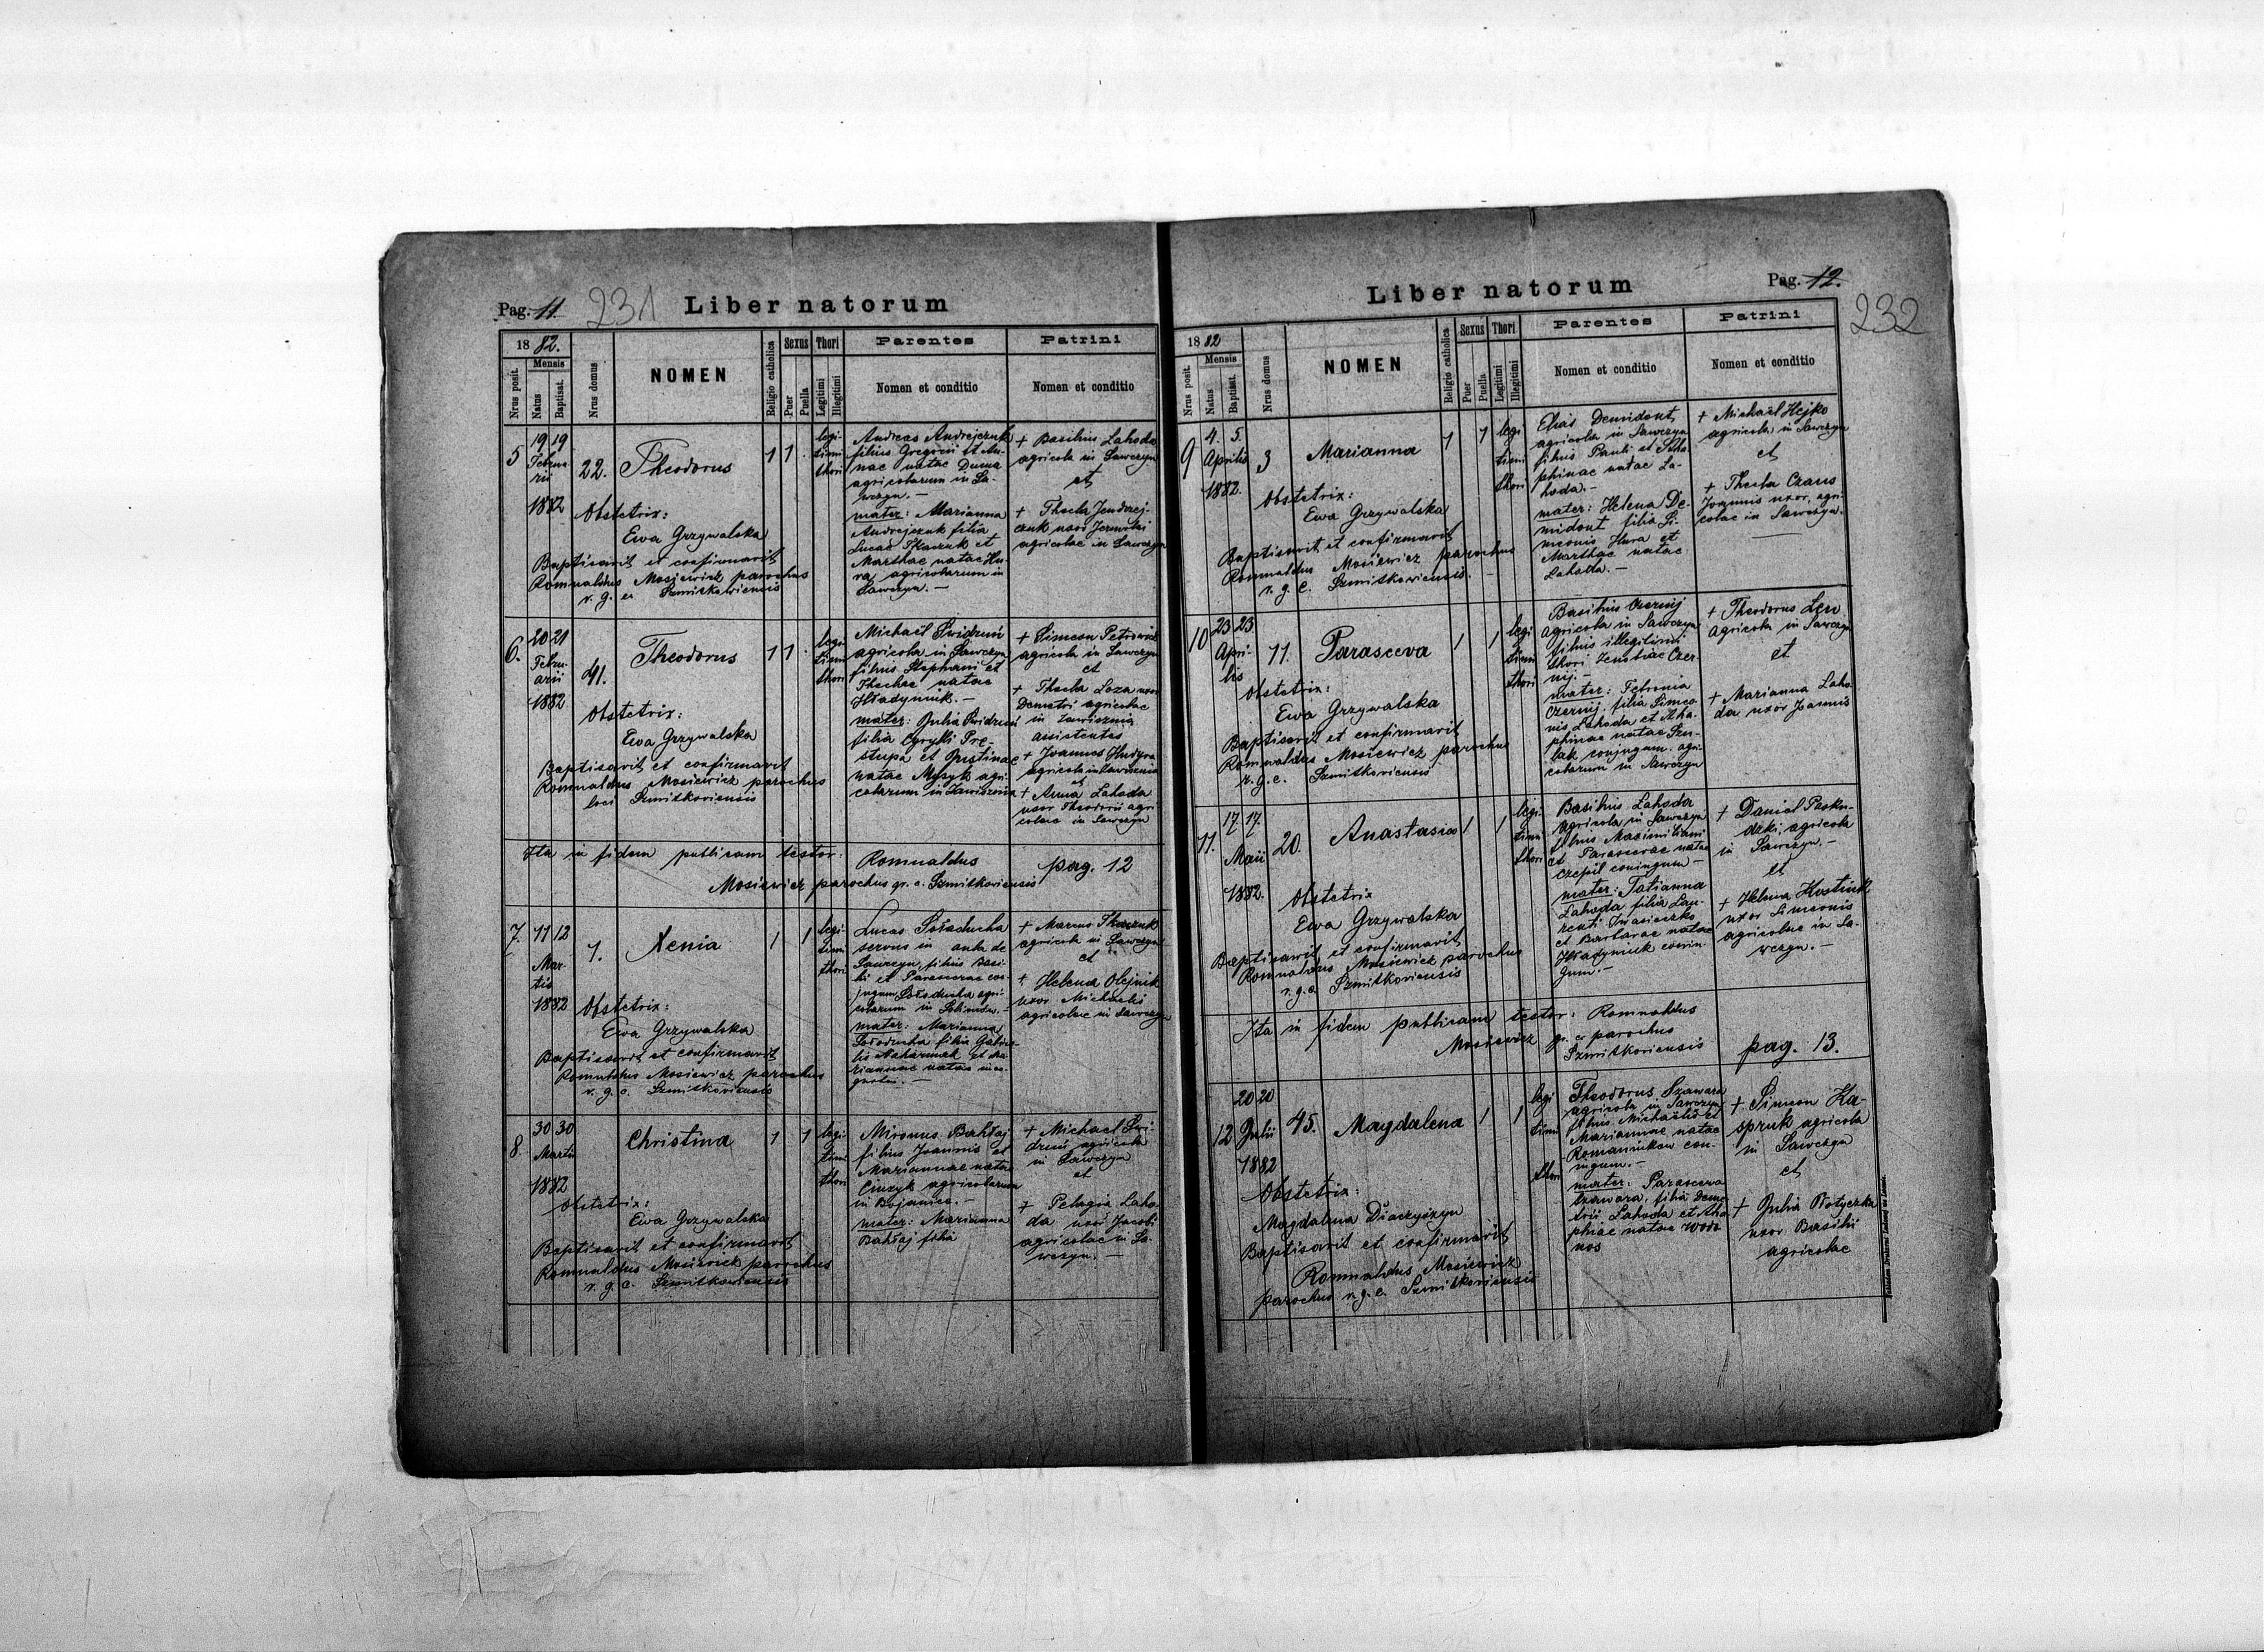 Pag. 11. 231 Liber natorum
18 82.
Mensis
Nrus posit.
Natus
Baptisat.
Nrus domus
NOMEN
Religio catholica
Sexus
Puer
Puella
Thori
Legitimi
Illegitimi
Parentes
Nomen et conditio
Patrini
Nomen et conditio
5
19 19
Februa-
rii
1882
22.
Theodorus
1 1
legi-
timi
thori
Obstetrix:
Ewa Grzywalska
Baptisavit et confirmavit
Romualdus Mosiewicz parochus
r. g. c. Szmitkoviensis
Andreas Andrejczuk
filius Gregorii et An-
nae natae Duma
agricolarum in Sa-
wczyn. —
mater: Marianna
Andrejczuk filia
Lucae Tkaczuk et
Marthae natae Hu-
ra, agricolarum in
Sawczyn. —
+ Basilius Lahoda
agricola in Sawczyn
et
+ Thecla Jendrzej-
czuk uxor
agricolae in Sawczyn
6.
20 21
Febru-
arii
1882
41.
Theodorus
1 1
legi-
timi
thori
Obstetrix:
Ewa Grzywalska
Baptisavit et confirmavit
Romualdus Mosiewicz parochus
loci Szmitkoviensis
Michaël Swidziń
agricola in Sawczyn
filius Stephani et
Theclae natae
Hładyniuk. —
mater: Julia Swidziń
filia Cyrylli Pre-
stupa et Christinae
natae Mysyk agri-
colarum in Zawisznia
+ Simeon Petrowicz
agricola in Sawczyn
et
+ Thecla Loza uxor
Demetri agricolae
in Zawisznia
assistentes
+ Joannes
agricola in Zawisznia
et
+ Anna Lahoda
uxor Theodorii agri-
colae in Sawczyn
Ita in fidem publicam testor: Romualdus
Mosiewicz parochus gr. c. Szmitkoviensis
pag. 12
7.
11 12
Mar-
tis
1882
1.
Xenia
1 1
legi-
timi
thori
Obstetrix:
Ewa Grzywalska
Baptisavit et confirmavit
Romualdus Mosiewicz parochus
r. g. c. Szmitkoviensis
Lucas Sołoducha
servus in aula de
Sawczyn, filius Basi-
lii et Parascevae con-
jugum Sołoducha agri-
colarum in
mater: Marianna
Sołoducha filia Gabrie-
lis et Ma-
riannae natae
+ Marcus Tkaczuk
agricola in Sawczyn
et
+ Helena Olejnik
uxor Michaelis
agricolae in Sawczyn
8.
30 30
Martii
1882
Christina
1 1
legi-
timi
thori
Obstetrix:
Ewa Grzywalska
Baptisavit et confirmavit
Romualdus Mosiewicz parochus
r. g. c. Szmitkoviensis
Mironus Bahłaj
filius Joannis et
Mariannae natae
agricolarum
in Bojanice. —
mater: Marianna
Bahłaj filia
+ Michael Swi-
dziń agricola
in Sawczyn
et
+ Pelagia Laho-
da uxor Jacobi
agricolae in Sa-
wczyn. —
Liber natorum Pag. 12. 232
18 82
Mensis
Nrus posit.
Natus
Baptisat.
Nrus domus
NOMEN
Religio catholica
Sexus
Puer
Puella
Thori
Legitimi
Illegitimi
Parentes
Nomen et conditio
Patrini
Nomen et conditio
9
4. 5.
Aprilis
1882.
3
Marianna
1 1
legi
timi
thori
Obstetrix:
Ewa Grzywalska
Baptisavit et confirmavit
Romualdus Mosiewicz parochus
r. g. c. Szmitkoviensis. —
Elias Demidont
agricola in Sawczyn
filius Pauli et Atha
phinae natae La-
hoda. —
mater: Helena De-
midont filia Si-
meonis Hura et
Marthae natae
Lahoda. —
+ Michaël Hejko
agricola in Sawczyn
et
+ Thecla Czaus
Joannis uxor, agri-
colae in Sawczyn.
10
23 23
Apri-
lis
11.
Parasceva
1 1
legi
timi
thori
Obstetrix:
Ewa Grzywalska
Baptisavit et confirmavit
Romualdus Mosiewicz parochus
r. g. c. Szmitkoviensis
Basilius Czernij
agricola in Sawczyn
filius illegitimi
thori Czer-
nij. —
mater: Petronia
Czernij, filia Simeo-
nis Lahoda et Atha-
phinae natae Szu-
lak conjugum, agri-
colarum in Sawczyn
+ Theodorus Lew
agricola in Sawczyn
et
+ Marianna Laho-
da uxor Joannis
11.
17. 17
Maii
1882.
20.
Anastasia
1 1
legi
timi
thori
Obstetrix
Ewa Grzywalska
Baptisavit et confirmavit
Romualdus Mosiewicz parochus
r. g. c. Szmitkoviensis
Basilius Lahoda
agricola in Sawczyn
filius Maximiliani
et Parascevae natae
Czepil coniugum —
mater: Tatianna
Lahoda filia Lau-
renti Iwasieczko
et Barbarae natae
Hładyniuk coniu-
gum. —
+ Daniel Pasku-
dzki, agricola
in Sawczyn. —
et
+ Helena Kostiuk
uxor Simeonis
agricolae in Sa-
wczyn. —
Ita in fidem publicam testor: Romualdus
Mosiewicz gr. c. parochus
Szmitkoviensis
pag. 13.
12
20 20
Julii
1882
45.
Magdalena
1 1
legi
timi
thori
Obstetrix:
Magdalena Diaczyszyn
Baptisavit et confirmavit
Romualdus Mosiewicz
parochus r. g. c. Szmitkoviensis
Theodorus Szawara
agricola in Sawczyn
filius Michaelis et
Mariannae natae
Romaniukow con-
iugum. —
mater: Parasceva
Szawara, filia Deme-
trii Lahoda et Atha
phiae natae
+ Simeon Ka-
spruk agricola
in Sawczyn
et
+ Julia Wotyczka
uxor Basilii
agricolae